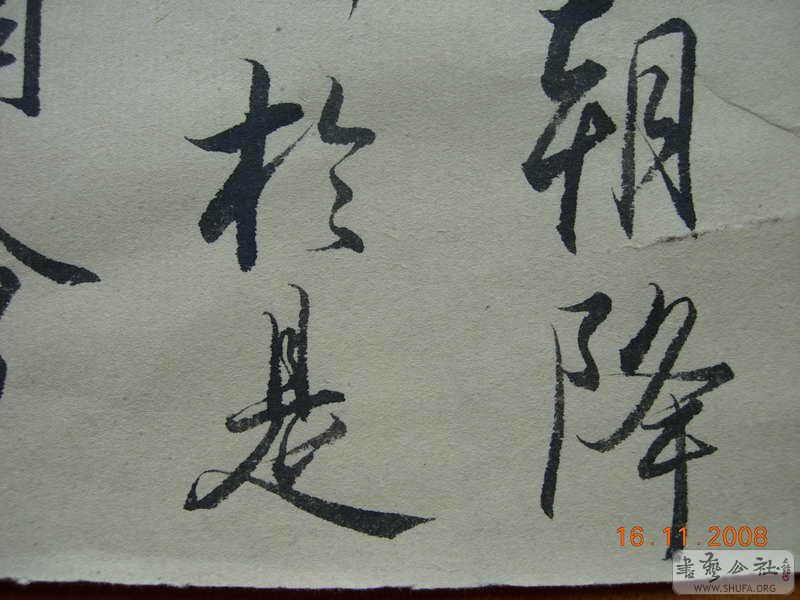 朝降
於是
16.11.2008
書藝公社
WWW.SHUFA.ORG